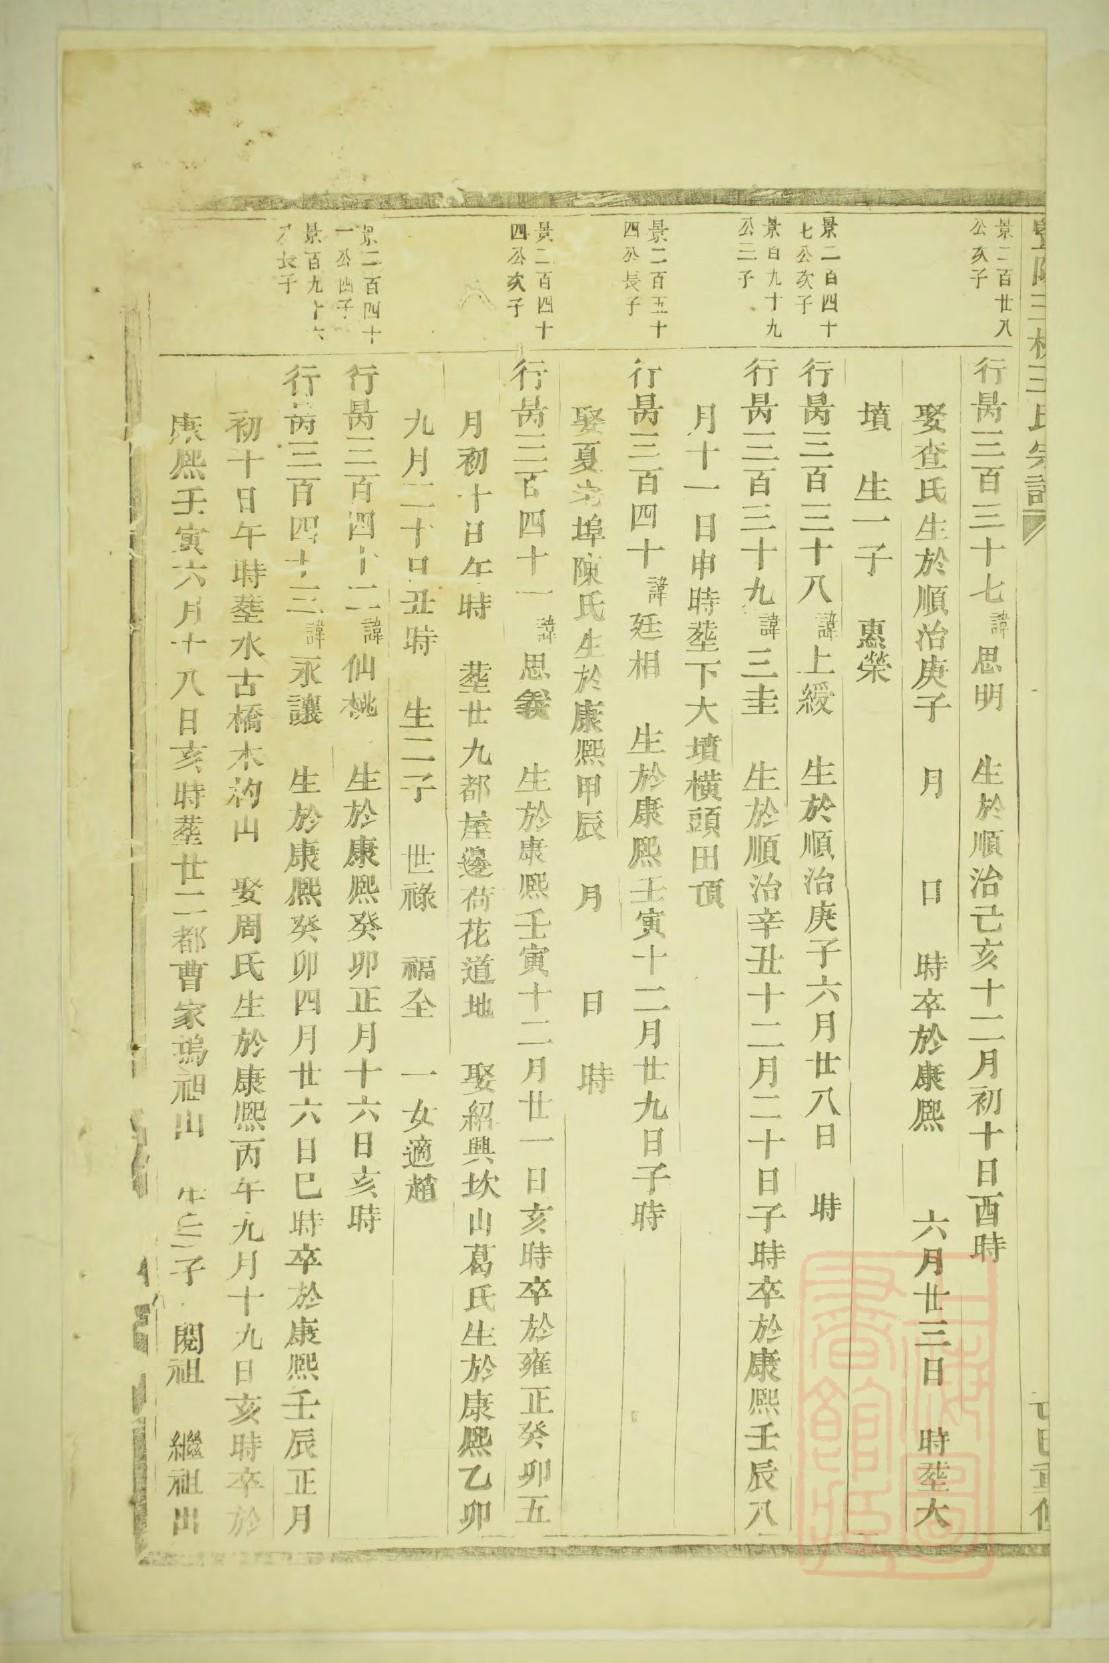 景二百廿八
公次子
行昺三百三十七諱思明 生於順治己亥十二月初十日酉時
娶查氏生於順治庚子 月 日 時卒於康熙 六月廿三日 時塟大
墳 生一子 惠榮
景二百四十
七公次子
行昺三百三十八諱上綬 生於順治庚子六月廿八日 時
景百九十九
公三子
行昺三百三十九諱三圭 生於順治辛丑十二月二十日子時卒於康熙壬辰八
月十一日申時塟下大墳橫頭田頂
景二百五十
四公長子
行昺三百四十諱廷相 生於康熙壬寅十二月廿九日子時
娶夏埠陳氏生於康熙甲辰 月 日 時
景二百四十
四公次子
行昺三百四十一諱思義 生於康熙壬寅十二月廿一日亥時卒於雍正癸卯五
月初十日午時 塟廿九都屋邊荷花道地 娶紹興坎山葛氏生於康熙乙卯
九月二十日丑時 生二子 世祿 福全 一女適趙
景二百四十
一公四子
行昺三百四十二諱仙桃 生於康熙癸卯正月十六日亥時
景百九十六
公長子
行昺三百四十三諱永讓 生於康熙癸卯四月廿六日巳時卒於康熙壬辰正月
初十日午時塟水古橋木杓山 娶周氏生於康熙丙午九月十九日亥時卒於
康熙壬寅六月十八日亥時塟廿二都曹家塢祖山 生三子 閱祖 繼祖出